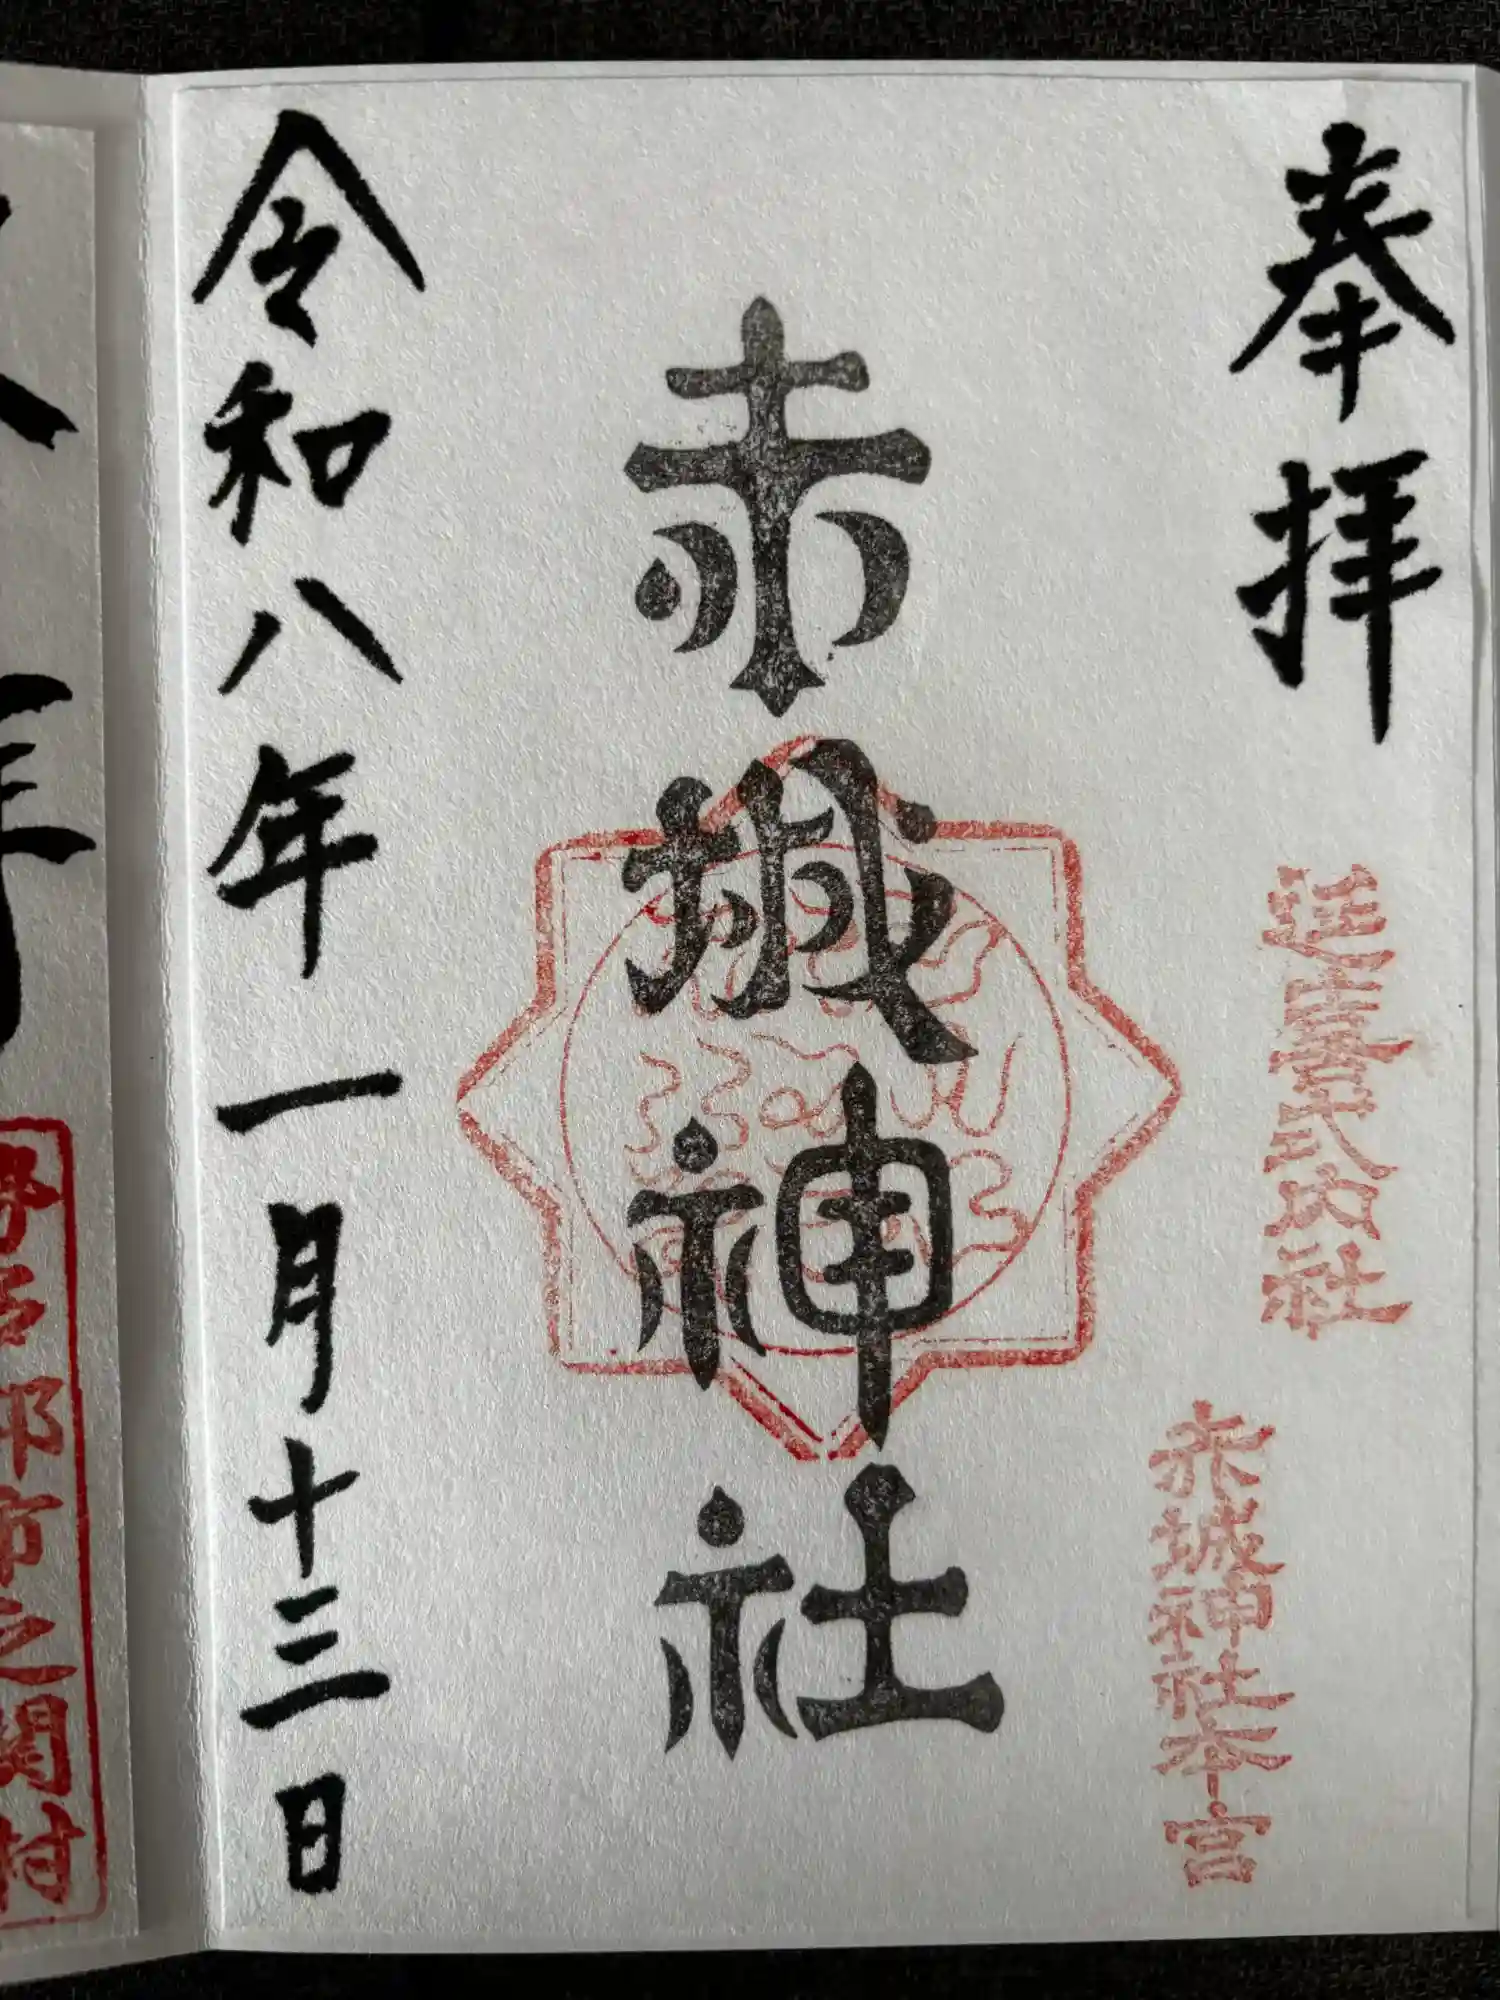 奉拝
延喜式内社
赤城神社本宮
赤城神社
令和八年一月十三日
年
郡市之関村